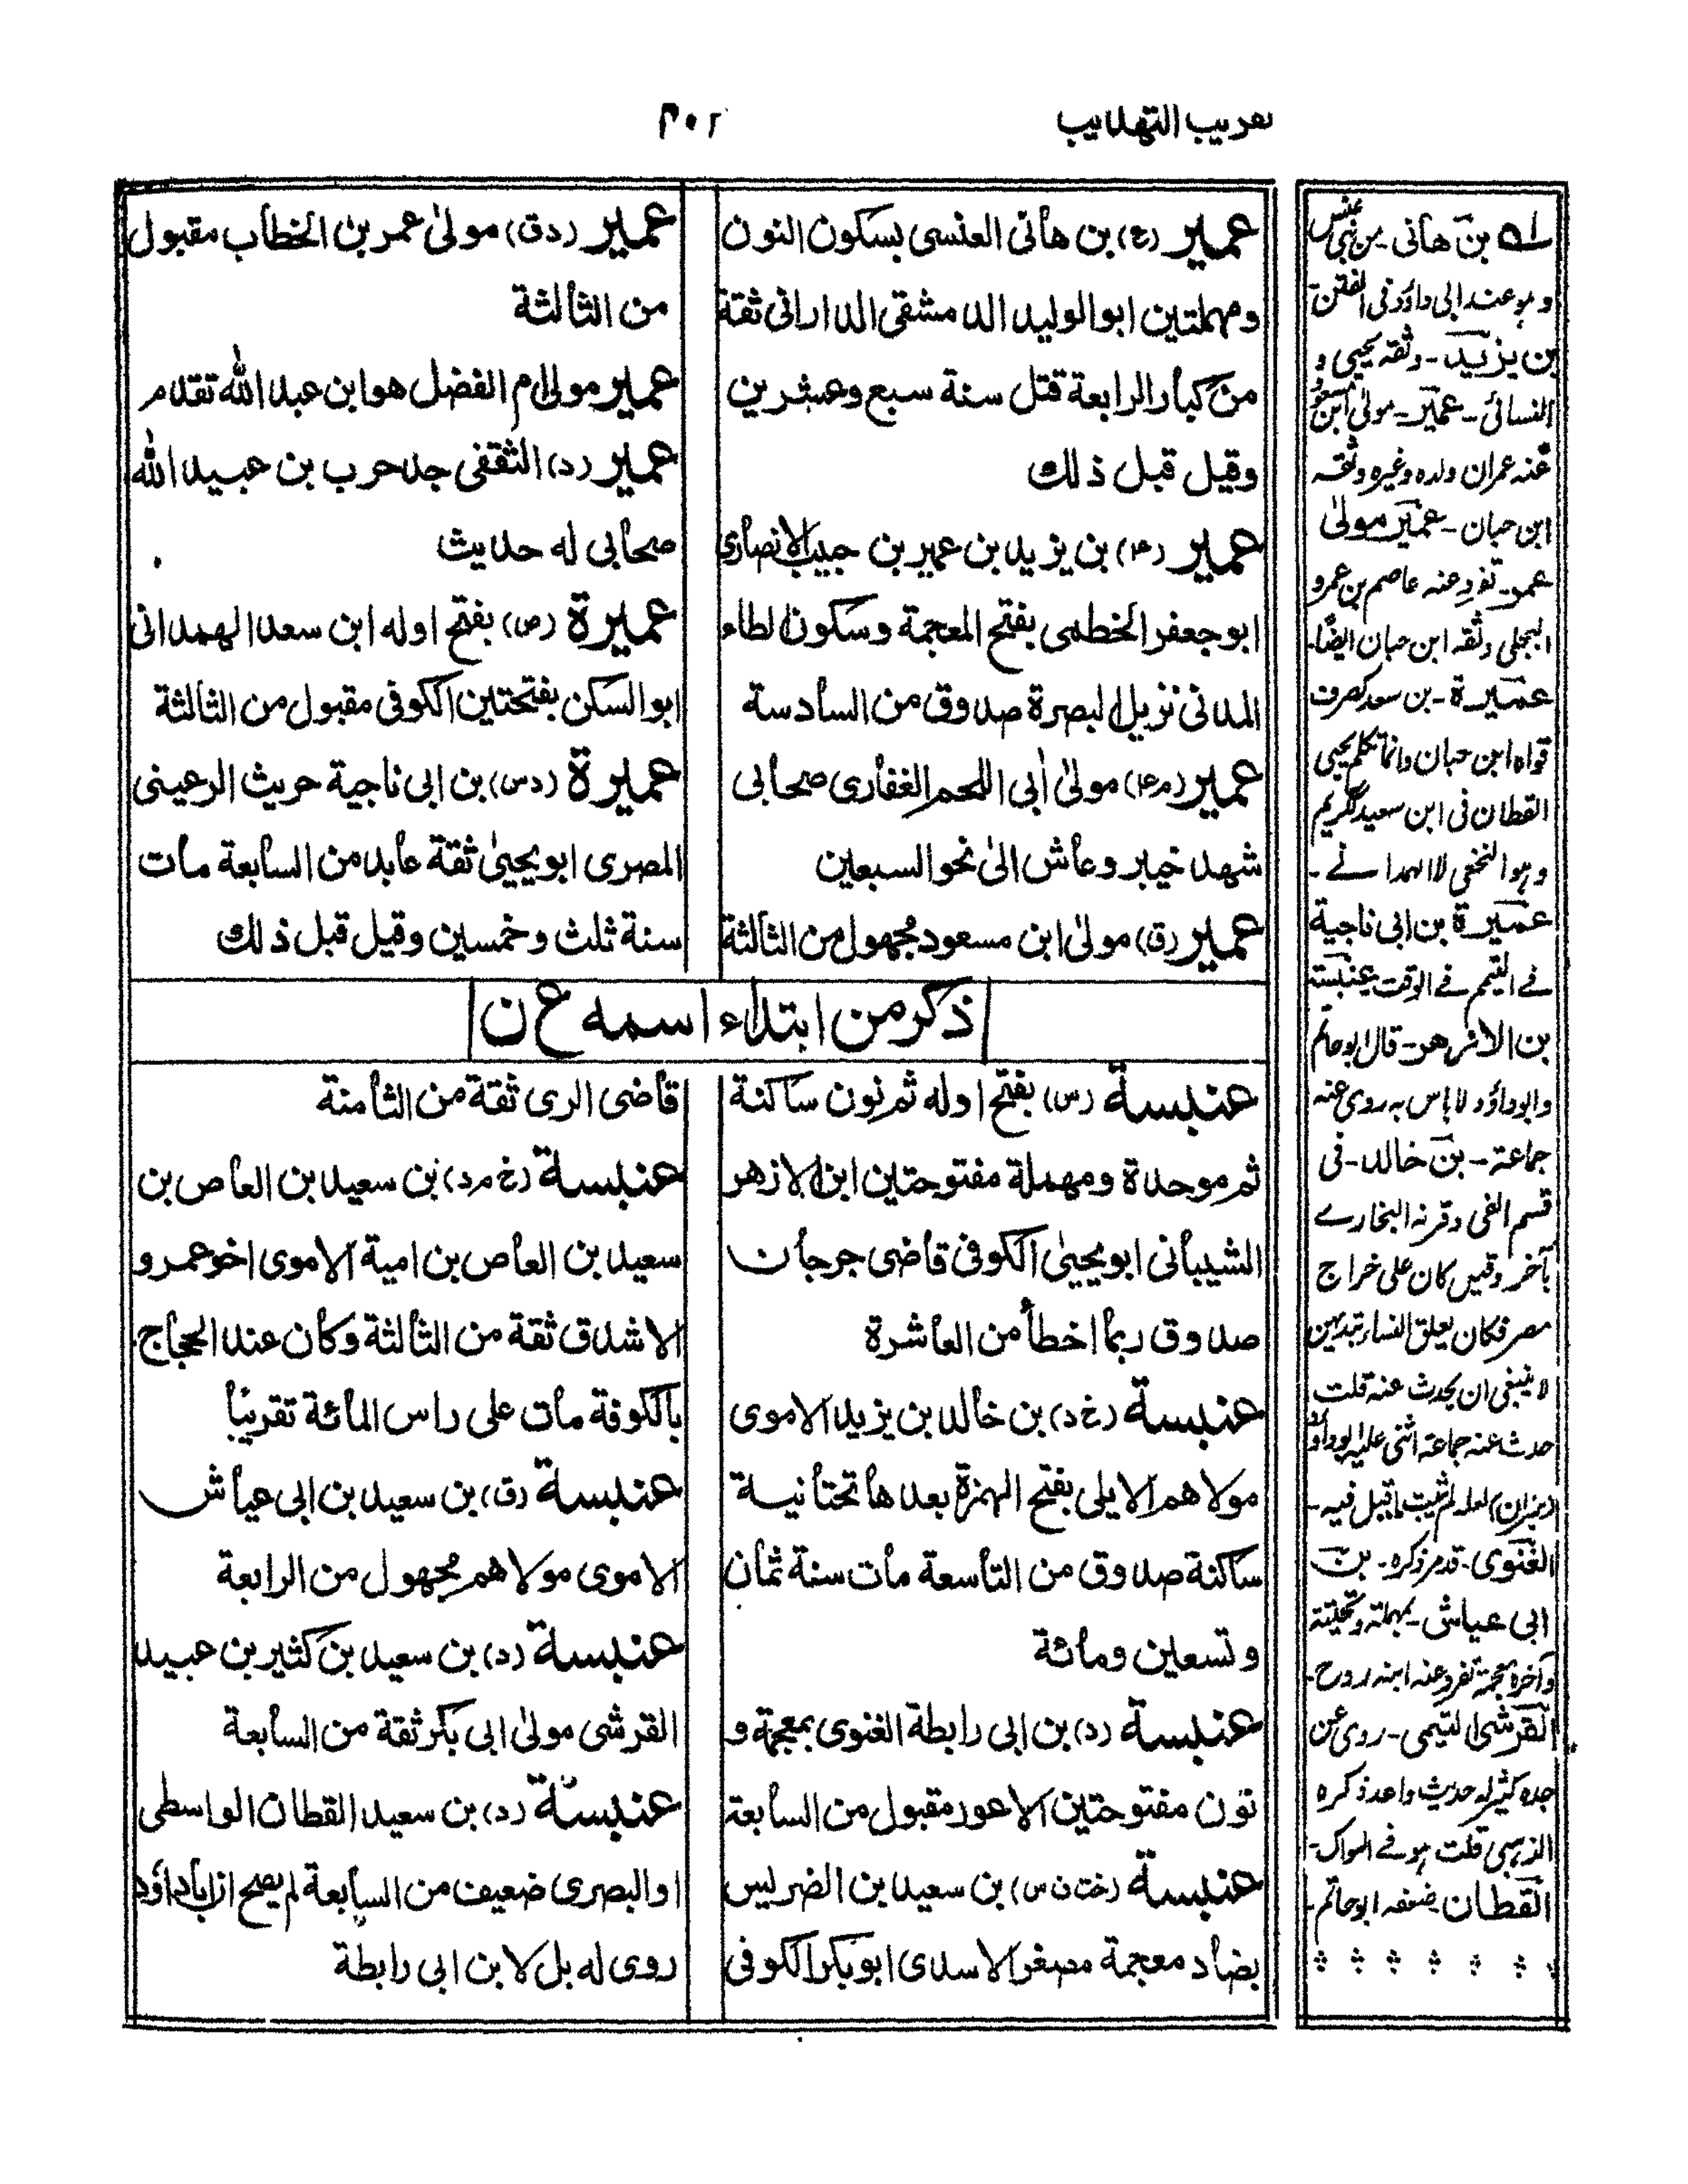 تقريب التهذيب
٣٠٢
عمير (ع) بن هانى العنسى بسكون النون
ومهملتين ابو الوليد الدمشقى الدارانى ثقة
من كبار الرابعة قتل سنة سبع وعشرين
وقيل قبل ذلك
عمير (عه) بن يزيد بن عمير بن حبيب الانصارى
ابو جعفر الخطمى بفتح المعجمة وسكون الطاء
المدنى نزيل البصرة صدوق من السادسة
عمير (م عه) مولىٰ اٰبى اللحم الغفارى صحابى
شهد خيبر وعاش الىٰ نحو السبعين
عمير (ق) مولىٰ ابن مسعود مجهول من الثالثة
عمير (د ق) مولىٰ عمر بن الخطاب مقبول
من الثالثة
عمير مولىٰ ام الفضل هو ابن عبد الله تقدم
عمير (د) الثقفى جد حرب بن عبيد الله
صحابى له حديث
عميرة (ص) بفتح اوله ابن سعد الهمدانى
ابو السكن بفتحتين الكوفى مقبول من الثالثة
عميرة (د س) بن ابى ناجية حريث الرعينى
المصرى ابو يحيىٰ ثقة عابد من السابعة مات
سنة ثلث وخمسين وقيل قبل ذلك
ذكر من ابتداء اسمه ع ن
عنبسة (س) بفتح اوله ثم نون ساكنة
ثم موحدة ومهملة مفتوحتين ابن الازهر
الشيبانى ابو يحيىٰ الكوفى قاضى جرجان
صدوق ربما اخطأ من العاشرة
عنبسة (خ د) بن خالد بن يزيد الاموى
مولاهم الايلى بفتح الهمزة بعدها تحتانية
ساكنة صدوق من التاسعة مات سنة ثمان
وتسعين ومائة
عنبسة (د) بن ابى رابطة الغنوى بمعجمة و
نون مفتوحتين الاعور مقبول من السابعة
عنبسة (خت ت س) بن سعيد بن الضريس
بضاد معجمة مصغر الاسدى ابو بكر الكوفى
قاضى الرى ثقة من الثامنة
عنبسة (خ م د) بن سعيد بن العاص بن
سعيد بن العاص بن امية الاموى اخو عمرو
الاشدق ثقة من الثالثة وكان عند الحجاج
بالكوفة مات على راس المائة تقريبًا
عنبسة (ق) بن سعيد بن ابى عياش
الاموى مولاهم مجهول من الرابعة
عنبسة (د) بن سعيد بن كثير بن عبيد
القرشى مولىٰ ابى بكر ثقة من السابعة
عنبسة (د) بن سعيد القطان الواسطى
او البصرى ضعيف من السابعة لم يصح ان اباداؤد
روى له بل لابن ابى رابطة
بن هانى - من بنى عنس
وهو عند ابى داؤد فى الفتن
بن يزيد - وثقه يحيى و
النسائى - عمير - مولى ابن مسعود
عنه عمران ولده وغيره وثقه
ابن حبان - عمير مولىٰ
عمر - تفرد عنه عاصم بن عمرو
البجلى وثقه ابن حبان ايضًا -
عميرة - بن سعد
قواه ابن حبان وانما تكلم يحيى
القطان فى ابن سعيد
وهو النخعى لا الهمدانے -
عميرة بن ابى ناجية
فے التيمم فے الوقت عنبسة
بن الازهر - قال ابو حاتم
وابو داؤد لا باس به روى عنه
جماعة - بن خالد - فى
قسم الفى وقرنه البخارے
بآخر وقيل كان على خراج
مصر فكان يعلق النساء بثديهن
لا ينبغى ان يحدث عنه قلت
حدث عنه جماعة اثنى عليه ابو داؤد
(ميزان) لعله لم يثبت ما قيل فيه -
الغنوى - قد مر ذكره - بن
ابى عياش - بمهملة وتحتية
وآخره معجمة تفرد عنه ابنه روح -
القرشى التيمى - روى عن
جده كثير له حديث واحد ذكره
الذهبى قلت هو فے السواك -
القطان ضعفه ابو حاتم -